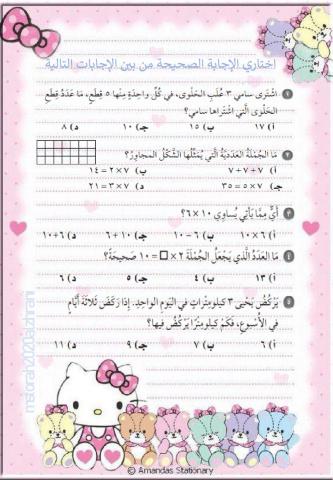 اختاري الإجابة الصحيحة من بين الإجابات التالية
١ اشْتَرى سامي ٣ عُلَبِ الحَلْوى، في كُلِّ واحِدَةٍ مِنْها ٥ قِطَعٍ، مَا عَدَدُ قِطَعِ
الحَلْوى الَّتي اشْتَراها سامي؟
أ) ١٧ ب) ١٥ جـ) ١٠ د) ٨
٢ مَا الجُمْلَةُ العَدَدِيَّةُ الَّتي يُمَثِّلُها الشَّكْلُ المجاوِرُ؟
أ) ٧ + ٧ + ٧ ب) ٧ × ٢ = ١٤
جـ) ٧ × ٥ = ٣٥ د) ٧ × ٣ = ٢١
٣ أَيٌّ مِمَّا يَأْتي يُساوِي ١٠ × ٦؟
أ) ٦ × ١٠ ب) ١٠ − ٦ جـ) ١٠ + ٦ د) ٦+١٠
٤ مَا العَدَدُ الَّذي يَجْعَلُ الجُمْلَةَ ٢ × □ = ١٠ صَحيحَةً؟
أ) ١٣ ب) ٤ جـ) ٥ د) ٦
٥ يَرْكُضُ يَحْيى ٣ كيلومِتْراتٍ في اليَوْمِ الواحِدِ. إذَا رَكَضَ ثَلاثَةَ أَيَّامٍ
في الأُسْبوعِ، فَكَمْ كيلومِتْرًا يَرْكُضُ فيها؟
أ) ٦ ب) ٧ جـ) ٩ د) ١١
© Amandas Stationary